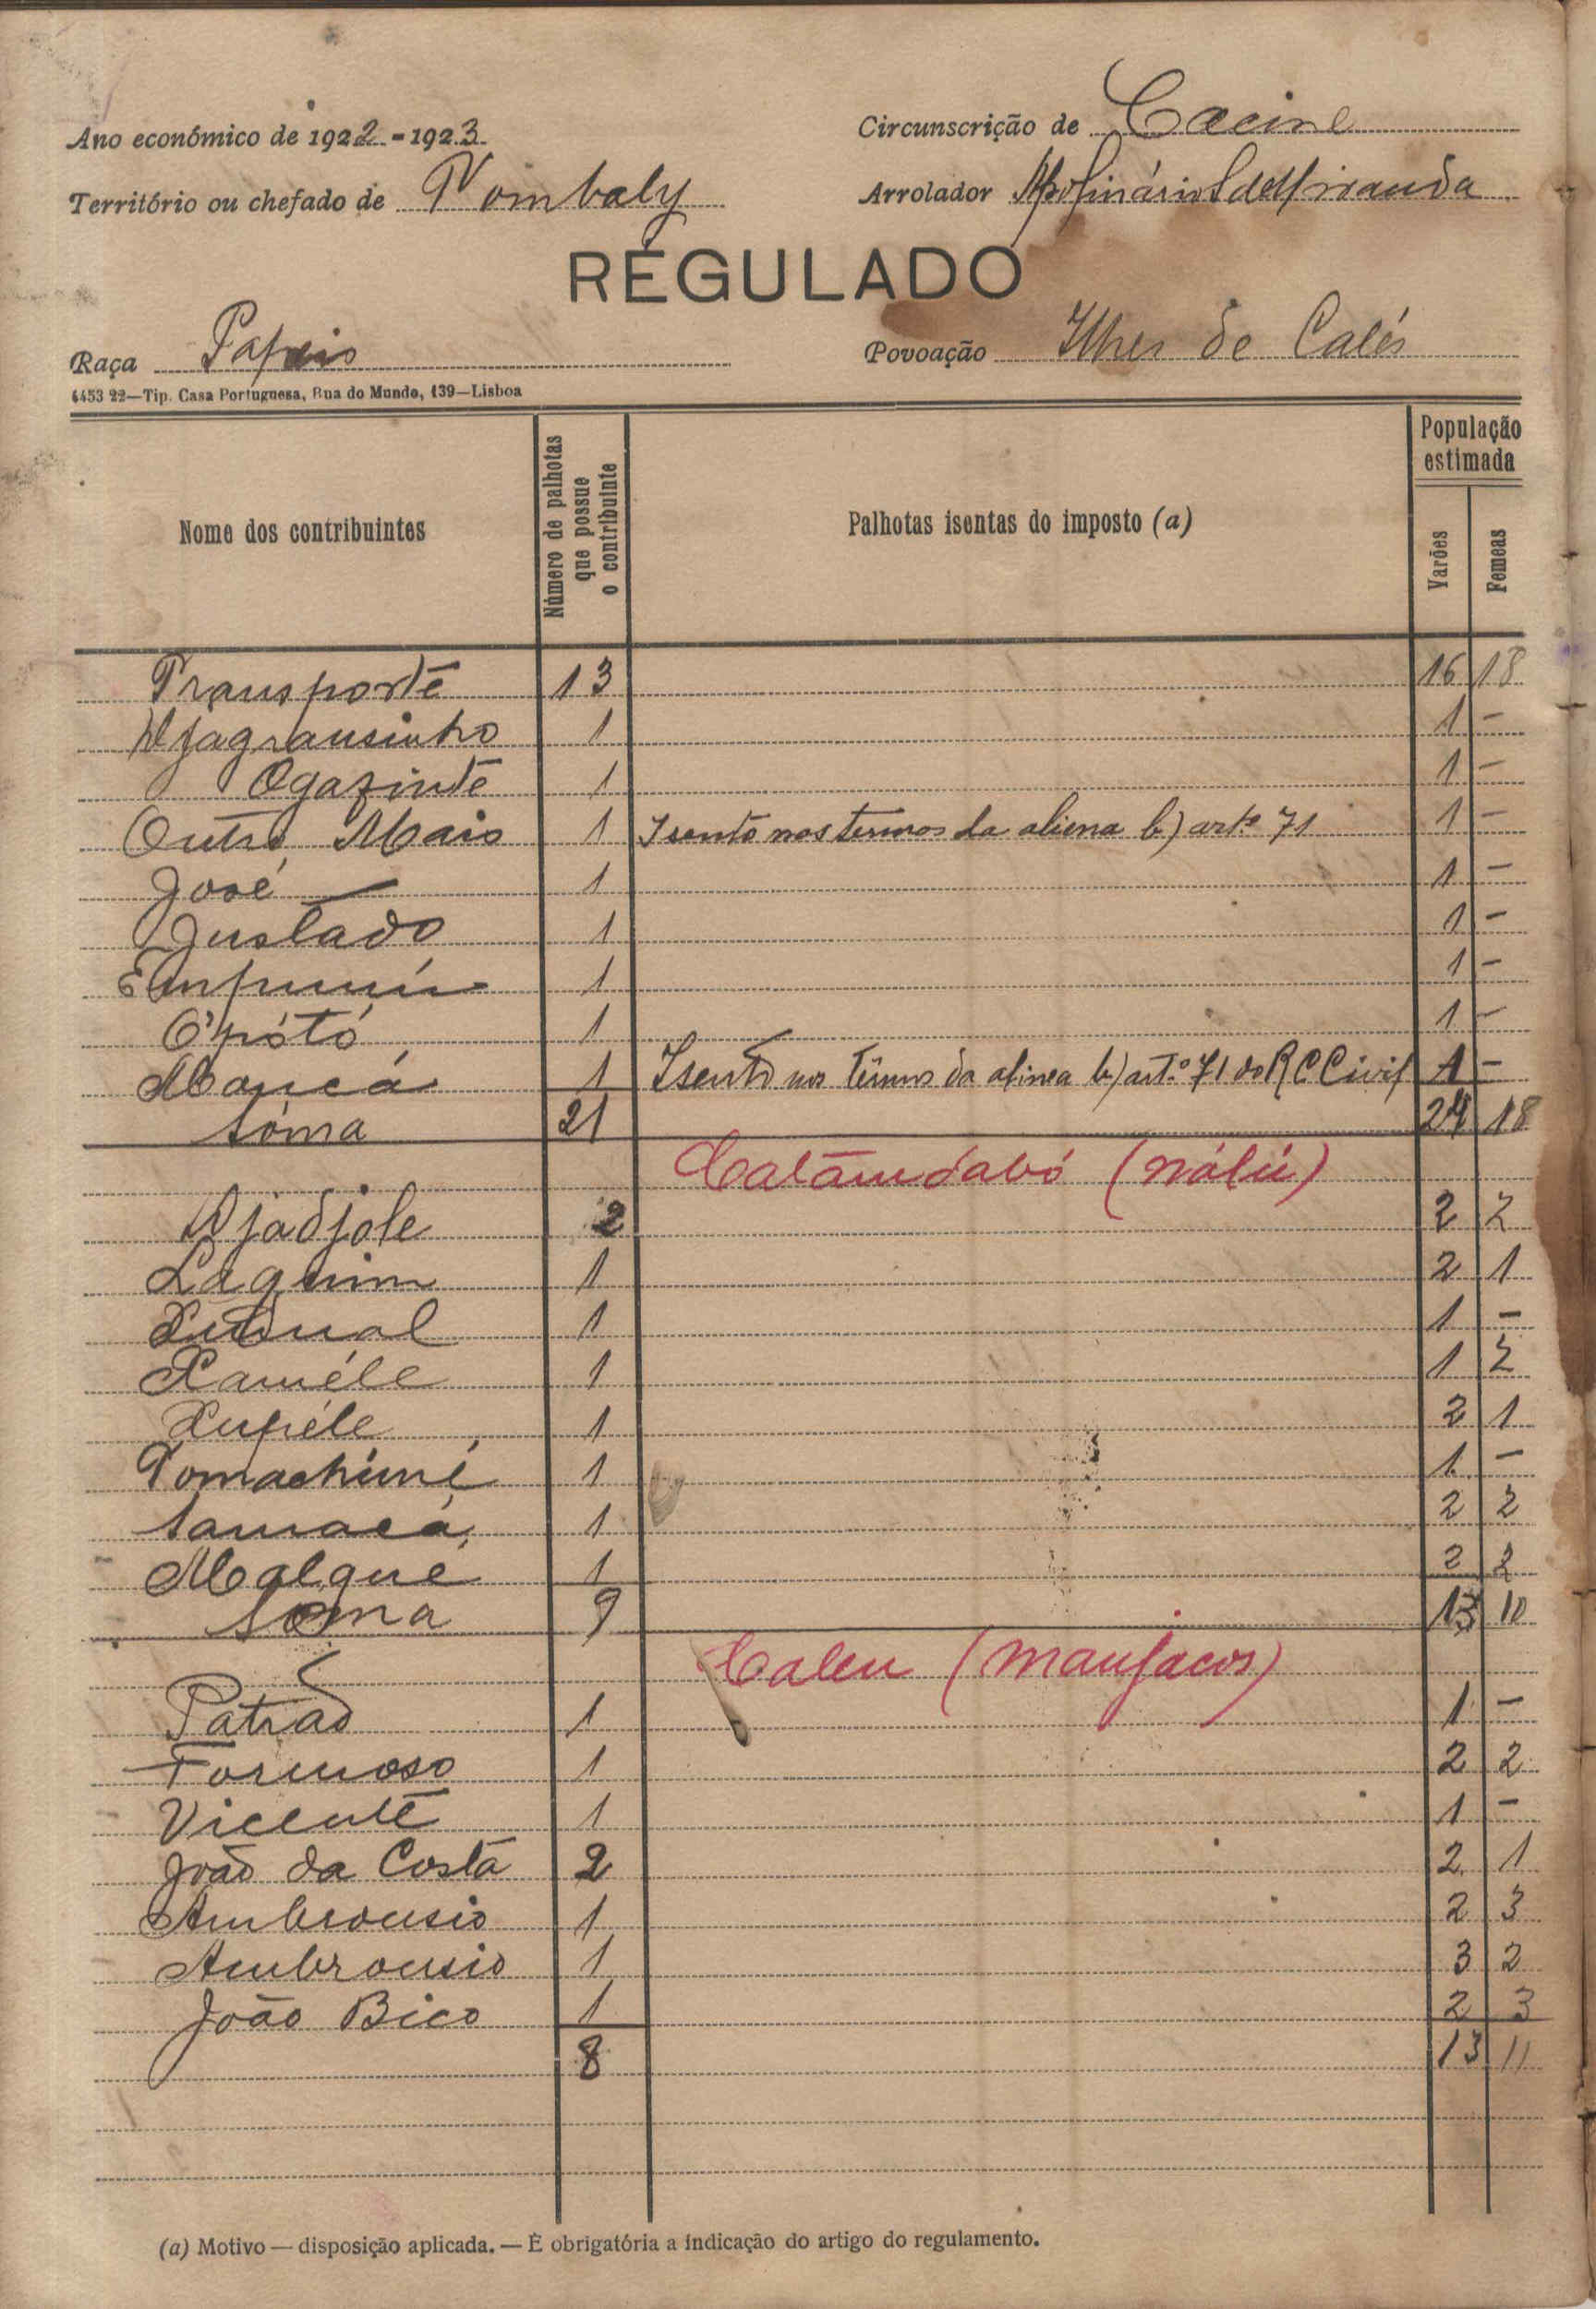 Ano económico de 1922-1923 Circunscrição de Cacine
Território ou chefado de Tombaly Arrolador Apolinário S de Miranda
REGULADO
Raça Papeis Povoação Ilheu de Calés
4453 22—Tip. Casa Portuguesa, Rua do Mundo, 139—Lisboa
Nome dos contribuintes Número de palhotas que possue o contribuinte Palhotas isentas do imposto (a) População estimada Varões Femeas
Transporte 13 16 18
Djagransinho 1 1 -
Ogafinte 1 1 -
Outro Mais 1 Isento nos termos da aliena b) artº 71 1 -
José 1 1 -
Justado 1 1 -
1 1 -
O'pótó 1 1 -
Mancá 1 Isento nos têrmos da alinea b) art.º 71 do R C Civil 1 -
Sôma 21 24 18
Catâmdabó (nálú)
Djadjole 2 2 2
Laguim 1 2 1
1 1 -
Raméle 1 1 2
Xupéle 1 2 1
Tomachimé 1 1 -
Samacá 1 2 2
Malqué 1 2 2
Soma 9 13 10
Caleu (manjacos)
Patrão 1 1 -
Formoso 1 2 2
Vicente 1 1 -
João da Costa 2 2 1
Ambrousio 1 2 3
Ambrousio 1 3 2
João Bico 1 2 3
8 13 11
(a) Motivo — disposição aplicada. — É obrigatória a indicação do artigo do regulamento.